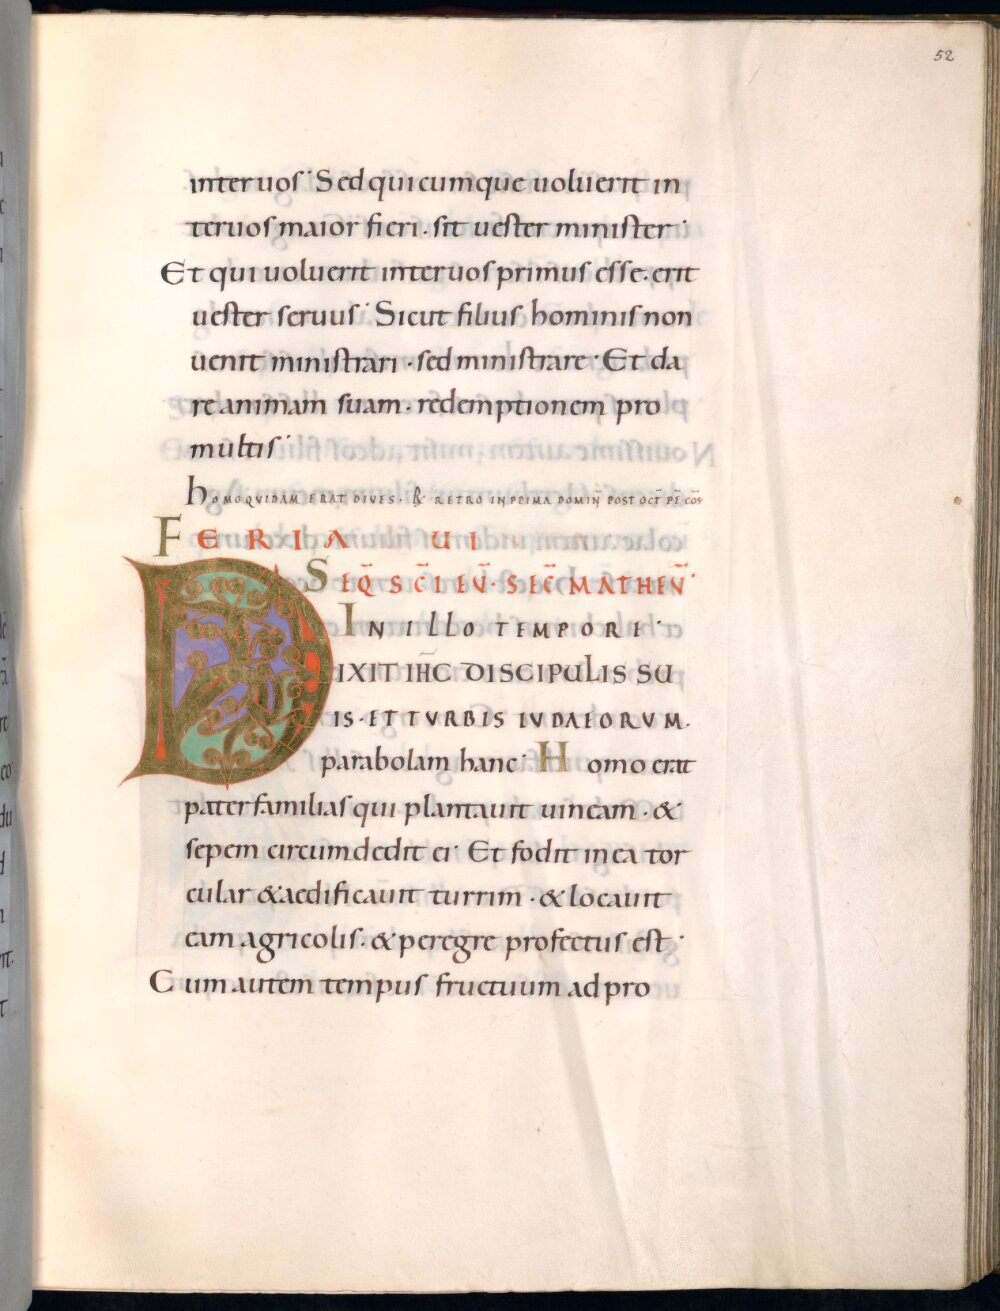 52
inter uos· Sed quicumque uoluerit in
ter uos maior fieri· sit uester minister·
Et qui uoluerit inter uos primus esse· erit
uester seruus· Sicut filius hominis non
uenit ministrari· sed ministrare· Et da
re animam suam· redemptionem pro
multis·
homo quidam erat dives· & retro in prima domiñ post oct̄ pē cos
FERIA UI
SEQ̄ S C̄I EṼ· SEC̄ MATHEṼ·
IN ILLO TEMPORE·
DIXIT IH̄C DISCIPULIS SU
IS· ET TVRBIS IVDAEORVM·
parabolam hanc· Homo erat
paterfamilias qui plantauit uineam· &
sepem circumdedit ei· Et fodit in ea tor
cular & aedificauit turrim· & locauit
eam agricolis· & peregre profectus est·
Cum autem tempus fructuum adpro